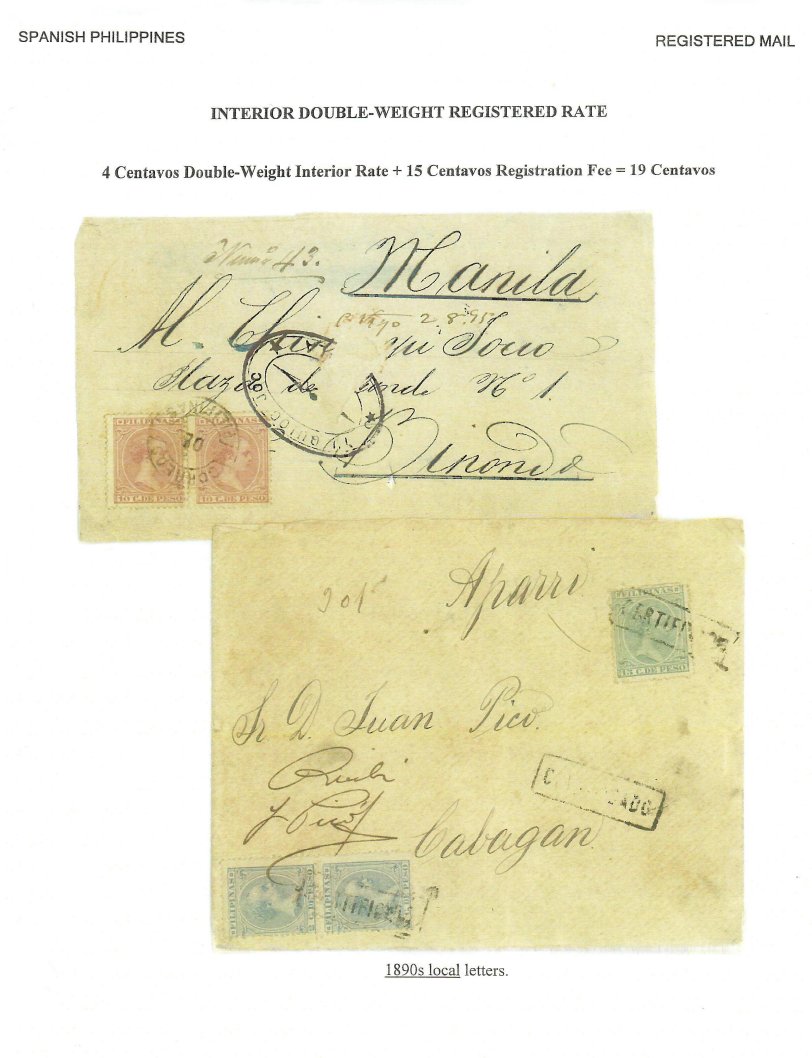 SPANISH PHILIPPINES
REGISTERED MAIL
INTERIOR DOUBLE-WEIGHT REGISTERED RATE
4 Centavos Double-Weight Interior Rate + 15 Centavos Registration Fee = 19 Centavos
43.
Manila
2 8 95
Plaza de
Nº 1.
Binondo
FILIPINAS FILIPINAS
10 C. DE PESO 10 C. DE PESO
Aparri
FILIPINAS
15 C. DE PESO
Sr D. Juan Pico.
Recibi
J Pico
Cabagan
FILIPINAS FILIPINAS
C. DE PESO C. DE PESO
1890s local letters.